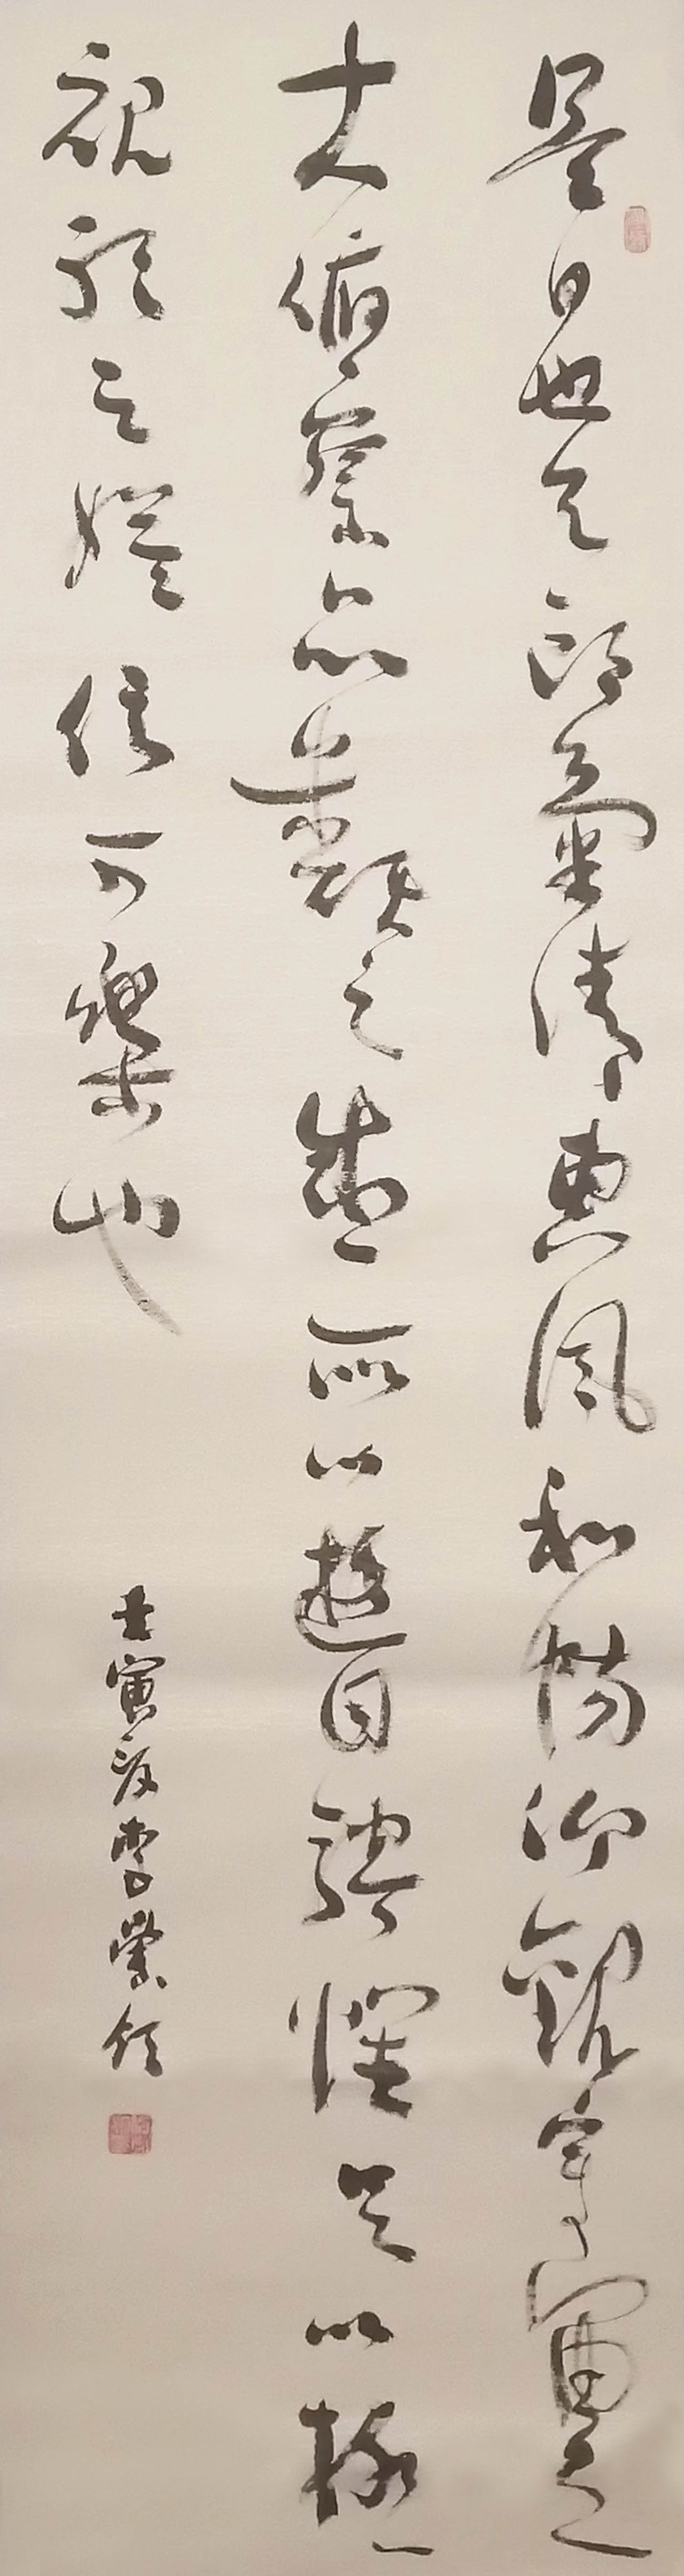 是日也天朗氣清惠風和暢仰觀宇宙之
大俯察品類之盛所以遊目騁懷足以極
視聽之娛信可樂也
壬寅夏李榮